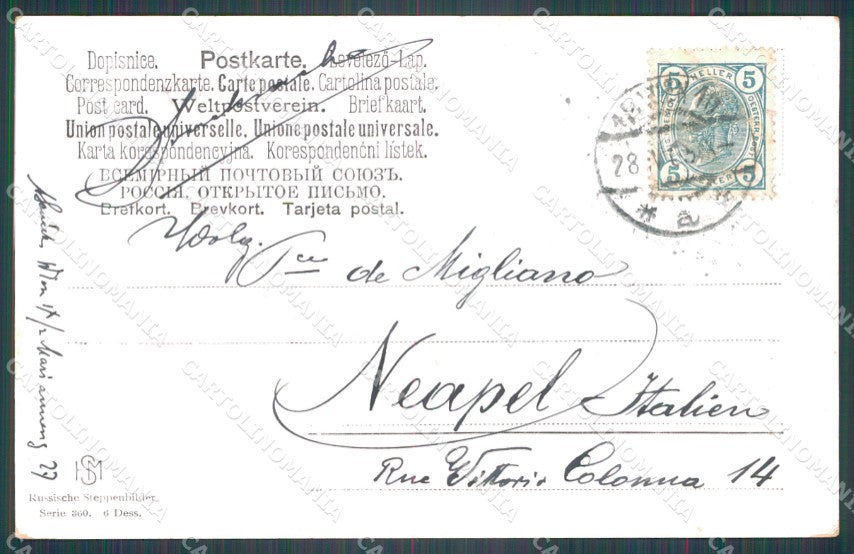 Dopisnice. Postkarte. Levelező-Lap.
Correspondenzkarte. Carte postale. Cartolina postale.
Post card. Weltpostverein. Briefkaart.
Union postale universelle. Unione postale universale.
Karta korespondencyjna. Korespondenční lístek.
ВСЕМІРНЫЙ ПОЧТОВЫЙ СОЮЗЪ.
РОССІЯ. ОТКРЫТОЕ ПИСЬМО.
Brefkort. Brevkort. Tarjeta postal.
Drucksache
5 HELLER 5
5 5
28
de Migliano
Neapel Italien
Rue Vittorio Colonna 14
Wien
HSM
Russische Steppenbilder
Serie 360. 6 Dess.
CARTOLINOMANIA